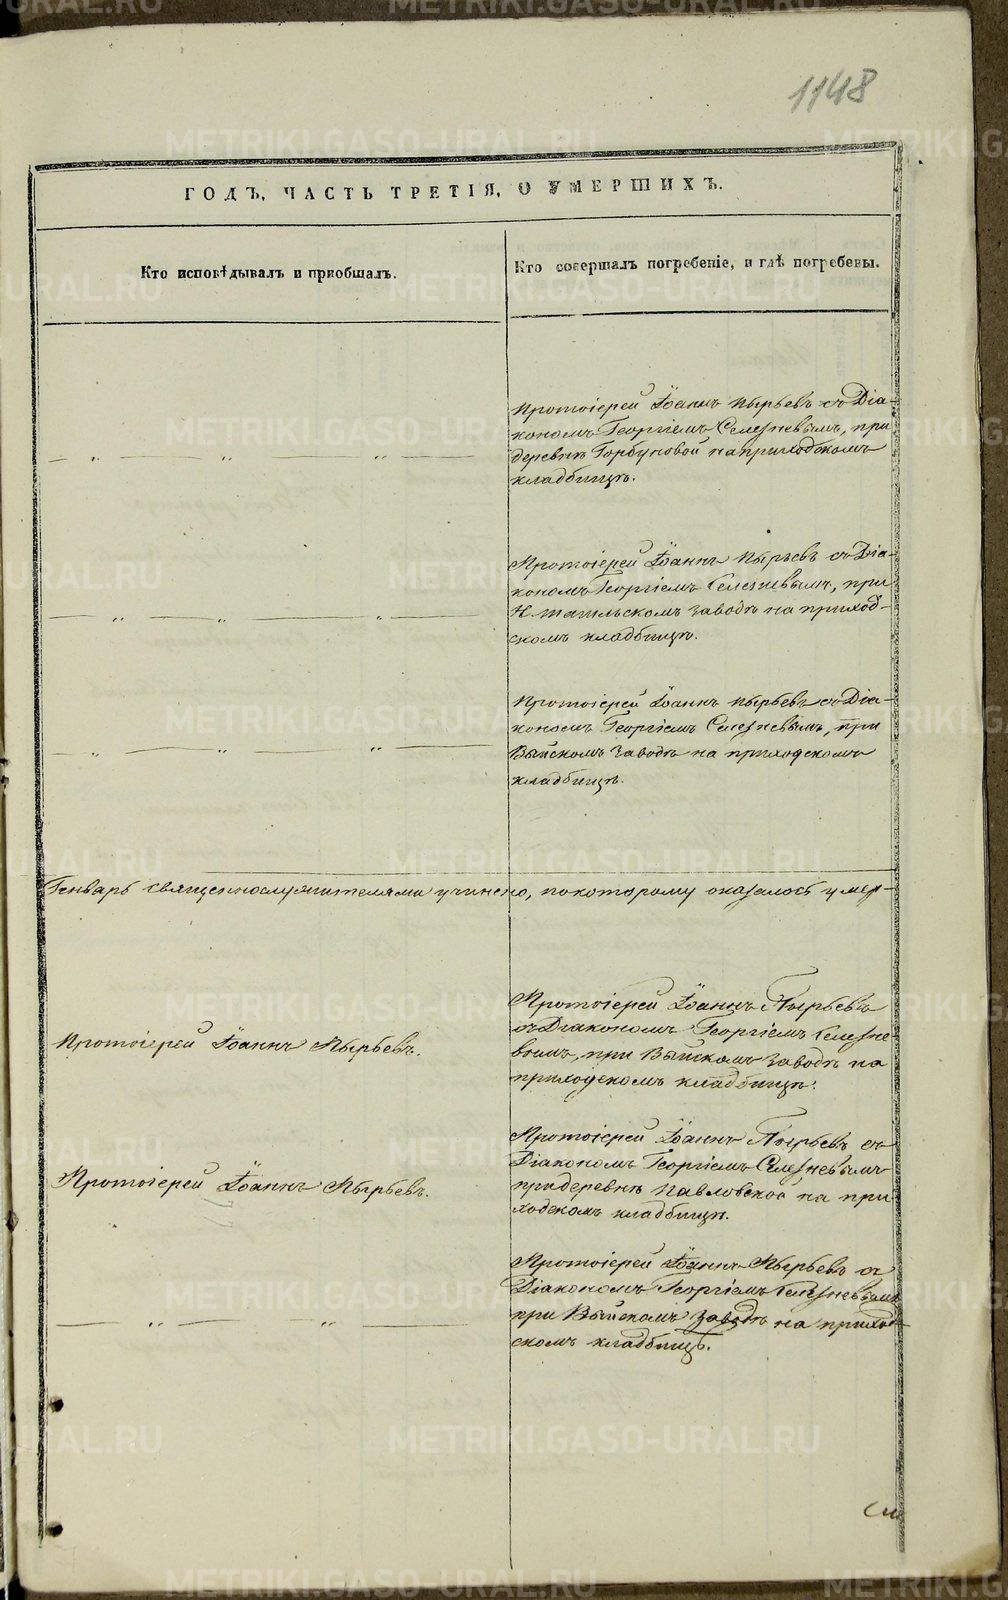 1148
ГОДЪ, ЧАСТЬ ТРЕТІЯ, О УМЕРШИХЪ.
Кто исповѣдывалъ и пріобщалъ.
Кто совершалъ погребеніе, и гдѣ погребены.
Протоіерей Іоаннъ Пырьевъ съ Діа-
кономъ Георгіемъ Селезневымъ, при
деревнѣ Горбуновой на приходскомъ
кладбищѣ.
— „ „ „ —
Протоіерей Іоаннъ Пырьевъ съ Діа-
кономъ Георгіемъ Селезневымъ, при
Н. Тагильскомъ заводѣ на приход-
скомъ кладбищѣ.
— „ — „ — „ —
Протоіерей Іоаннъ Пырьевъ съ Діа-
кономъ Георгіемъ Селезневымъ, при
Выйскомъ заводѣ на приходскомъ
кладбищѣ.
— „ — „ — „ —
Генварь священнослужителями учинено, по которому оказалось умер-
Протоіерей Іоаннъ Пырьевъ.
Протоіерей Іоаннъ Пырьевъ
съ Діакономъ Георгіемъ Селезне-
вымъ, при Выйскомъ заводѣ на
приходскомъ кладбищѣ.
Протоіерей Іоаннъ Пырьевъ.
Протоіерей Іоаннъ Пырьевъ съ
Діакономъ Георгіемъ Селезневымъ
при деревнѣ Павловской на при
ходскомъ кладбищѣ.
— „ — „ —
Протоіерей Іоаннъ Пырьевъ съ
Діакономъ Георгіемъ Селезневымъ
при Выйскомъ заводѣ на приход-
скомъ кладбищѣ.
METRIKI.GASO-URAL.RU